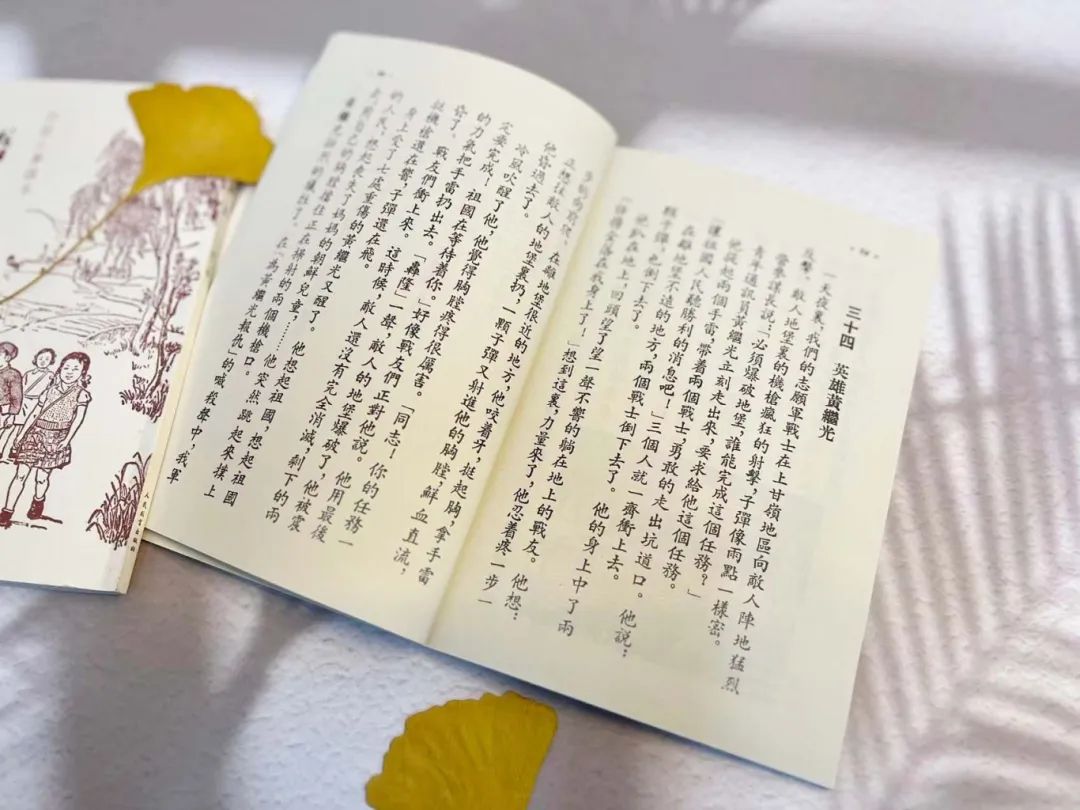 三十四　英雄黃繼光
一天夜裏,我們的志願軍戰士在上甘嶺地區向敵人陣地猛烈
反擊。敵人地堡裏的機槍瘋狂的射擊,子彈像雨點一樣密。
營參謀長說:「必須爆破地堡,誰能完成這個任務?」
青年通訊員黃繼光立刻走出來,要求給他這個任務。
他提起兩個手雷,帶着兩個戰士,勇敢的走出坑道口。他說:
「讓祖國人民聽勝利的消息吧!」三個人就一齊衝上去。
在離地堡不遠的地方,兩個戰士倒下去了。他的身上中了兩
顆子彈,也倒下去了。
他趴在地上,回頭望了望一聲不響的躺在地上的戰友。他想:
「任務落在我身上了!」想到這裏,力量來了,他忍着疼一步一
步的向前爬。在離地堡很近的地方,他咬着牙,挺起胸,拿手雷
正想往敵人的地堡裏扔,一顆子彈又射進他的胸膛,鮮血直流,
他昏過去了。
冷風吹醒了他,他覺得胸膛疼得很厲害。「同志!你的任務一
定要完成!祖國在等待着你。」好像戰友們正對他說。他用最後
的力氣把手雷扔出去。「轟隆」一聲,敵人的地堡爆破了,他被震
昏了。
戰友們衝上來。這時候,敵人還沒有完全消滅,剩下的兩
挺機槍還在響,子彈還在飛。
身上受了七處重傷的黃繼光又醒了。他想起祖國,想起祖國
的人民,想起喪失了媽媽的朝鮮兒童,……他突然跳起來撲上
去,用自己的胸膛擋住正在掃射的兩個機槍口。
黃繼光壯烈的犧牲了。在「為黃繼光報仇」的喊殺聲中,我軍
人民教育出版社